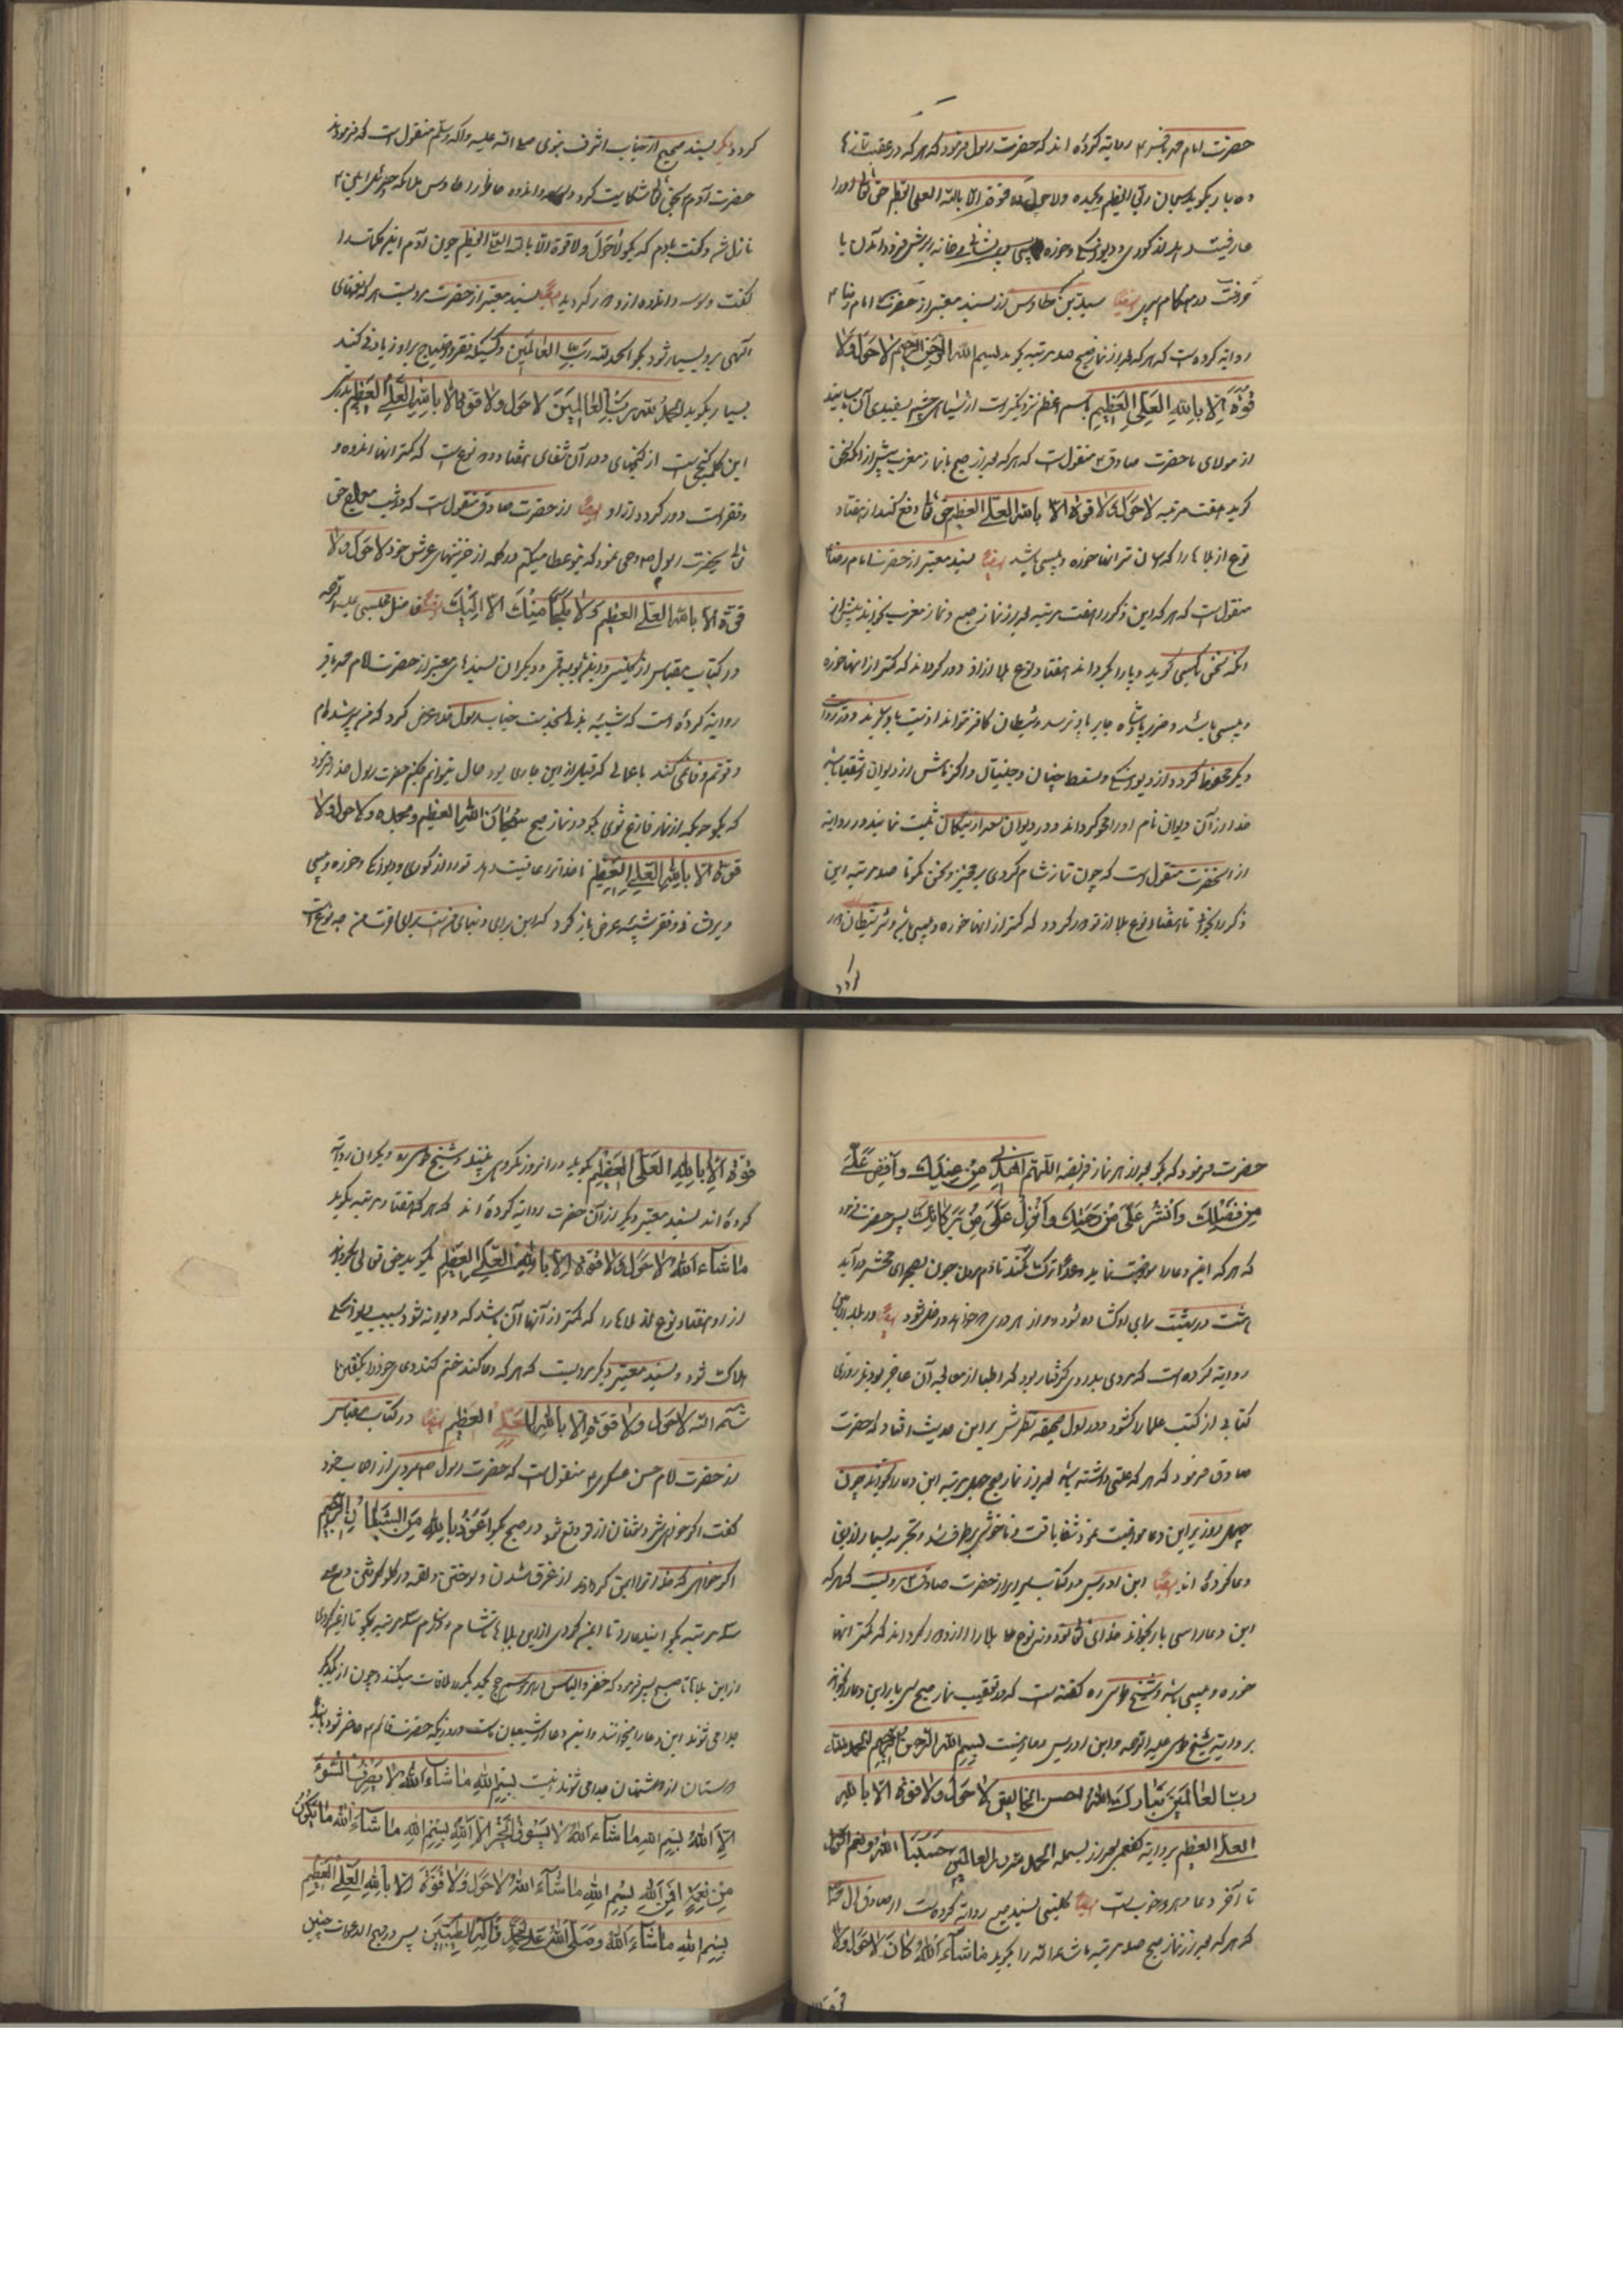 حضرت امام محمد باقر ع روایة کرده اند که حضرت رسول فرمود که هر که در عقب نمازها
ده بار بگوید سبحان ربی العظیم وبحمده ولا حول ولا قوة الا بالله العلی العظیم حق تعالی او را
عافیت دهد از کوری و دیوانگی و خوره و پیسی و پریشانی و خانه بر سرش فرود آمدن یا
خرفت در هنگام پیری ایضا سید بن طاوس از سند معتبر از حضرت امام رضا ع
روایة کرده است که هر که بعد از نماز صبح صد مرتبه بگوید بسم الله الرحمن الرحیم لا حول ولا
قوة الا بالله العلی العظیم باسم اعظم نزدیکتر است از سیاهی چشم بسفیدی آن
از مولای ما حضرت صادق ع منقول است که هر که بعد از صبح یا نماز مغرب پیش از آنکه سخن
گوید هفت مرتبه لا حول ولا قوة الا بالله العلی العظیم حق تعالی دفع کند از هفتاد
نوع از بلاها را که آسان تر آنها خوره و پیسی باشد ایضا بسند معتبر از حضرت امام رضا ع
منقول است که هر که این ذکر را هفت مرتبه بعد از نماز صبح و نماز مغرب بخواند پیش از
آنکه سخن با کسی گوید و پا را بگرداند هفتاد نوع بلا از او دور گرداند که کمتر از آنها خوره
و پیسی باشد و ضرر پادشاه جابر باو نرسد و شیطان کافر نتواند اذیت باو برساند و در روایت
دیگر محفوظ گردد از دیوانگی
خدا از آن دیوان نام او را محو گرداند و در دیوان سعدا از نیکان ثبت نمایند و در روایة
از آنحضرت منقول است که چون نماز شام کردی برمخیز و سخن مگو تا صد مرتبه این
ذکر را بخوانی تا هفتاد نوع بلا از تو دور گردد که کمتر از آنها خوره و پیسی باشد و شر شیطان دور
گردد
گردد دیگر بسند صحیح از جناب اشرف نبوی صلی الله علیه وآله وسلم منقول است که فرمودند
حضرت آدم بحق تعالی شکایت کرد وسوسه و اندوه خاطر را پس ملائکه جبرئیل امین ع
نازل شد و گفت یا آدم که بگو لا حول ولا قوة الا بالله العلی العظیم چون آدم این کلمات را
گفت وسوسه و اندوه از او دور گردید ایضا بسند معتبر از حضرت مرویست هر که نعمتهای
الهی بر او بسیار شود بگوید الحمد لله رب العالمین و کسیکه فقر و احتیاج بر او زیادتی کند
بسیار بگوید الحمد لله رب العالمین لا حول ولا قوة الا بالله العلی العظیم
این کلمه گنجی است از گنجهای و در آن شفای هفتاد و دو نوع است که کمتر آنها اندوه و
و فقر است دور گردد از او ایضا از حضرت صادق منقول است که در شب معراج حق
تعالی بحضرت رسول ص وحی نمود که بتو عطا میکنم دو کلمه از خزینهای عرش خود لا حول ولا
قوة الا بالله العلی العظیم ولا ملجأ منک الا الیک ایضا فاضل مجلسی علیه الرحمه
در کتاب مقباس از کلینی و ابن بابویه قمی و دیگران بسندهای معتبر از حضرت امام محمد باقر
روایة کرده است که شیبه هذلی بخدمت جناب رسول خدا عرض کرد که من پیر شده ام
و قوتم وفا نمی کند باعمالی که قبل از این عادی بود حال میتوانم بکنم حضرت رسول خدا فرمود
که بگو چونکه از نماز فارغ شوی بگو در نماز صبح سبحان الله العظیم وبحمده ولا حول ولا
قوة الا بالله العلی العظیم تا خدا ترا عافیت دهد تو را از کوری و دیوانگی و خوره و پیسی
و پریشانی و فقر شیبه عرض باز کرد که این برای دنیای من است برای آخرت من چه نوع است
حضرت فرمود که بگو بعد از هر نماز فریضه اللهم اهدنی من عندک وأفض علی
من فضلک وانشر علی من رحمتک وأنزل علی من برکاتک پس حضرت فرمود
که هر که این دعا را مواظبت نماید و عمدا ترک نکند تا دم مردن چون بصحرای محشر در آید
هشت در بهشت برای او گشاده شود و از هر دری که خواهد داخل شود ایضا در بلد الامین
روایة کرده است که مردی بدردی گرفتار بود که اطبا از معالجه آن عاجز بودند روزی
کتابی از کتب علما را گشود و در اول صحیفه نظرش بر این حدیث افتاد که حضرت
صادق فرمود که هر که علتی داشته باشد بعد از نماز صبح چهل مرتبه این دعا را بخواند چون
چهل روز بر این دعا مواظبت نمود شفا یافت و ناخوشی برطرف شد و تجربه بسیار از این
دعا کرده اند ایضا ابن ادریس در کتاب سرایر از حضرت صادق ع مرویست که هر که
این دعا را سی بار بخواند خدای تعالی نود و نه نوع بلا را از او دور گرداند که کمتر آنها
خوره و پیسی باشد و شیخ طوسی ره گفته است که در تعقیب نماز صبح سی بار این دعا را بخواند
بروایة شیخ طوسی علیه الرحمه و ابن ادریس دعا اینست بسم الله الرحمن الرحیم الحمد لله
رب العالمین تبارک الله احسن الخالقین لا حول ولا قوة الا بالله
العلی العظیم بروایة کفعمی بعد از بسمله الحمد لله رب العالمین حسبنا الله ونعم الوکیل
تا آخر دعا هر دو خوب است ایضا کلینی بسند صحیح روایة کرده است از صادق آل محمد
که هر که بعد از نماز صبح صد مرتبه ما شاء الله را بگوید ما شاء الله کان لا حول ولا
قوة
قوة الا بالله العلی العظیم بگوید در آنروز مکروهی نبیند و شیخ طوسی ره و دیگران روایة
کرده اند بسند معتبر دیگر از آن حضرت روایة کرده اند که هر که هفتاد مرتبه بگوید
ما شاء الله لا حول ولا قوة الا بالله العلی العظیم بگوید حق تعالی بگرداند
از او هفتاد نوع از بلاها را که کمتر از آنها آن باشد که دیوانه شود بسبب دیوانگی
هلاک شود و بسند معتبر دیگر مرویست که هر که دعا کند ختم کند دعای خود را بگفتن ما
شاء الله لا حول ولا قوة الا بالله العلی العظیم ایضا در کتاب مقباس
از حضرت امام حسن عسکری ع منقول است که حضرت رسول ص بمردی از اصحاب خود
گفت اگر خواهی شر دشمنان از تو دفع شود در صبح بگو اعوذ بالله من الشیطان الرجیم
اگر خواهی که خدا ترا ایمن گرداند از غرق شدن و سوختن و لقمه در گلو گرفتن در صبح
سه مرتبه بگو این دعا را تا ایمن گردی از این بلاها تا شام و در شام سه مرتبه بگو تا ایمن گردی
از این بلاها تا صبح پس فرمود که خضر و الیاس در هر موسم حج یکدیگر را ملاقات میکنند و چون از یکدیگر
جدا می شوند این دعا را میخوانند و این دعا از شیعیان ماست و روزیکه حضرت قائم ع ظاهر شود باین
دوستان از دشمنان جدا می شوند اینست بسم الله ما شاء الله لا یصرف السوء
الا الله بسم الله ما شاء الله لا یسوق الخیر الا الله بسم الله ما شاء الله ما یکون
من نعمة فمن الله بسم الله ما شاء الله لا حول ولا قوة الا بالله العلی العظیم
بسم الله ما شاء الله وصلی الله علی محمد وآله الطیبین پس در مهج الدعوات چنین